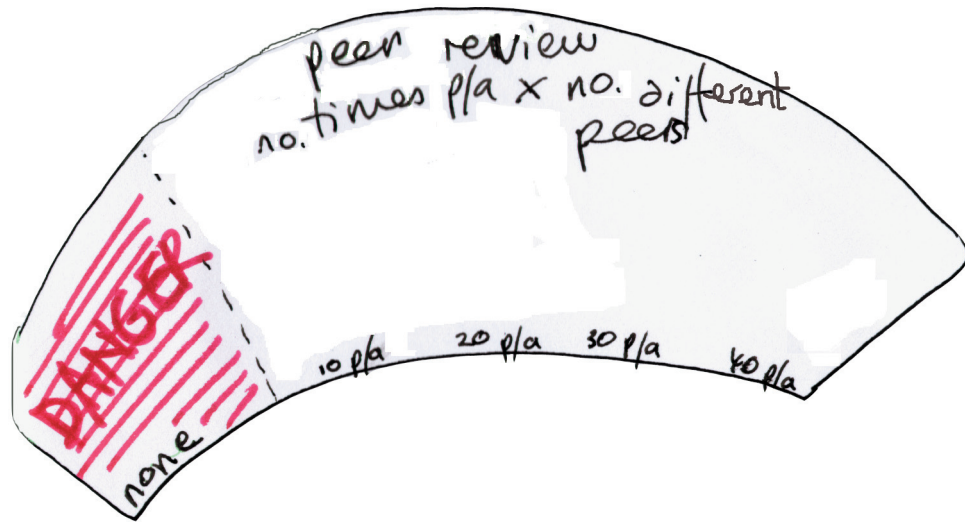 peer review
no. times p/a x no. different
peers
DANGER
none
10 p/a
20 p/a
30 p/a
40 p/a